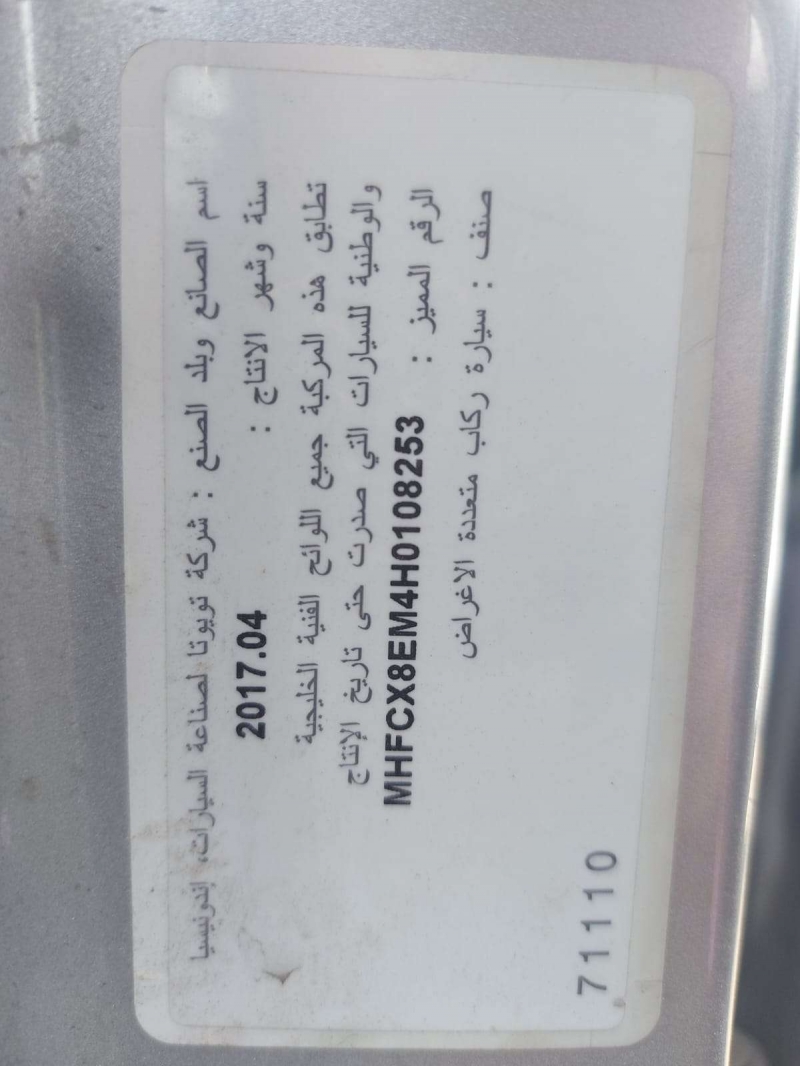 اسم الصانع وبلد الصنع : شركة تويوتا لصناعة السيارات، إندونيسيا
سنة وشهر الانتاج : 2017.04
تطابق هذه المركبة جميع اللوائح الفنية الخليجية
والوطنية للسيارات التي صدرت حتى تاريخ الإنتاج
الرقم المميز : MHFCX8EM4H0108253
صنف : سيارة ركاب متعددة الاغراض
71110